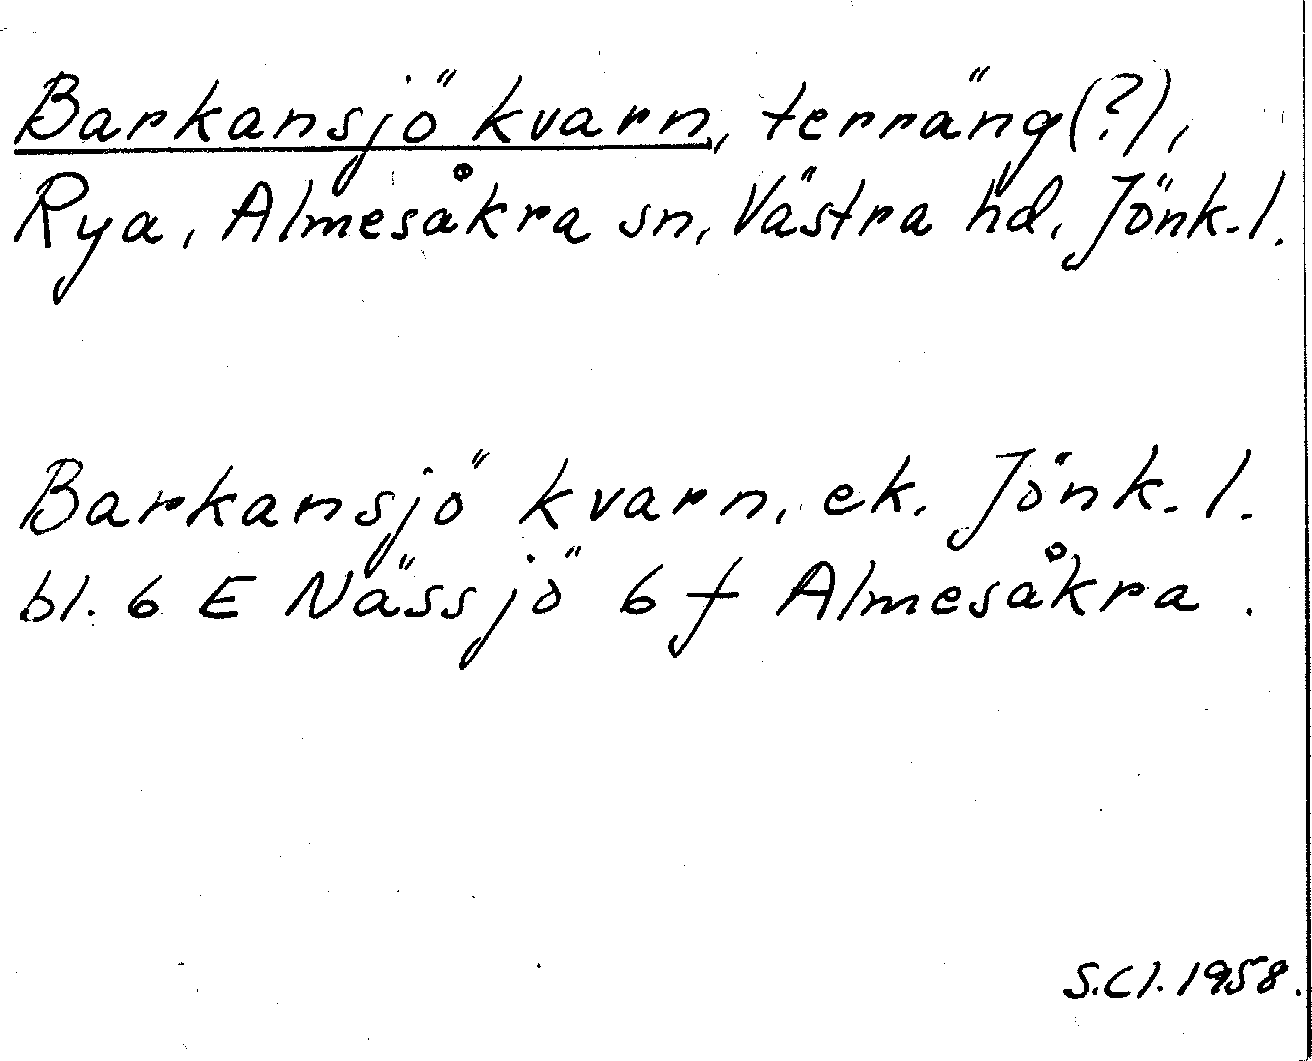 Barkansjö kvarn, terräng(?),
Rya, Almesåkra sn, Västra hd, Jönk. l.
Barkansjö kvarn, ek. Jönk. l.
bl. 6 E Nässjö 6 f Almesåkra.
S.Cl. 1958.